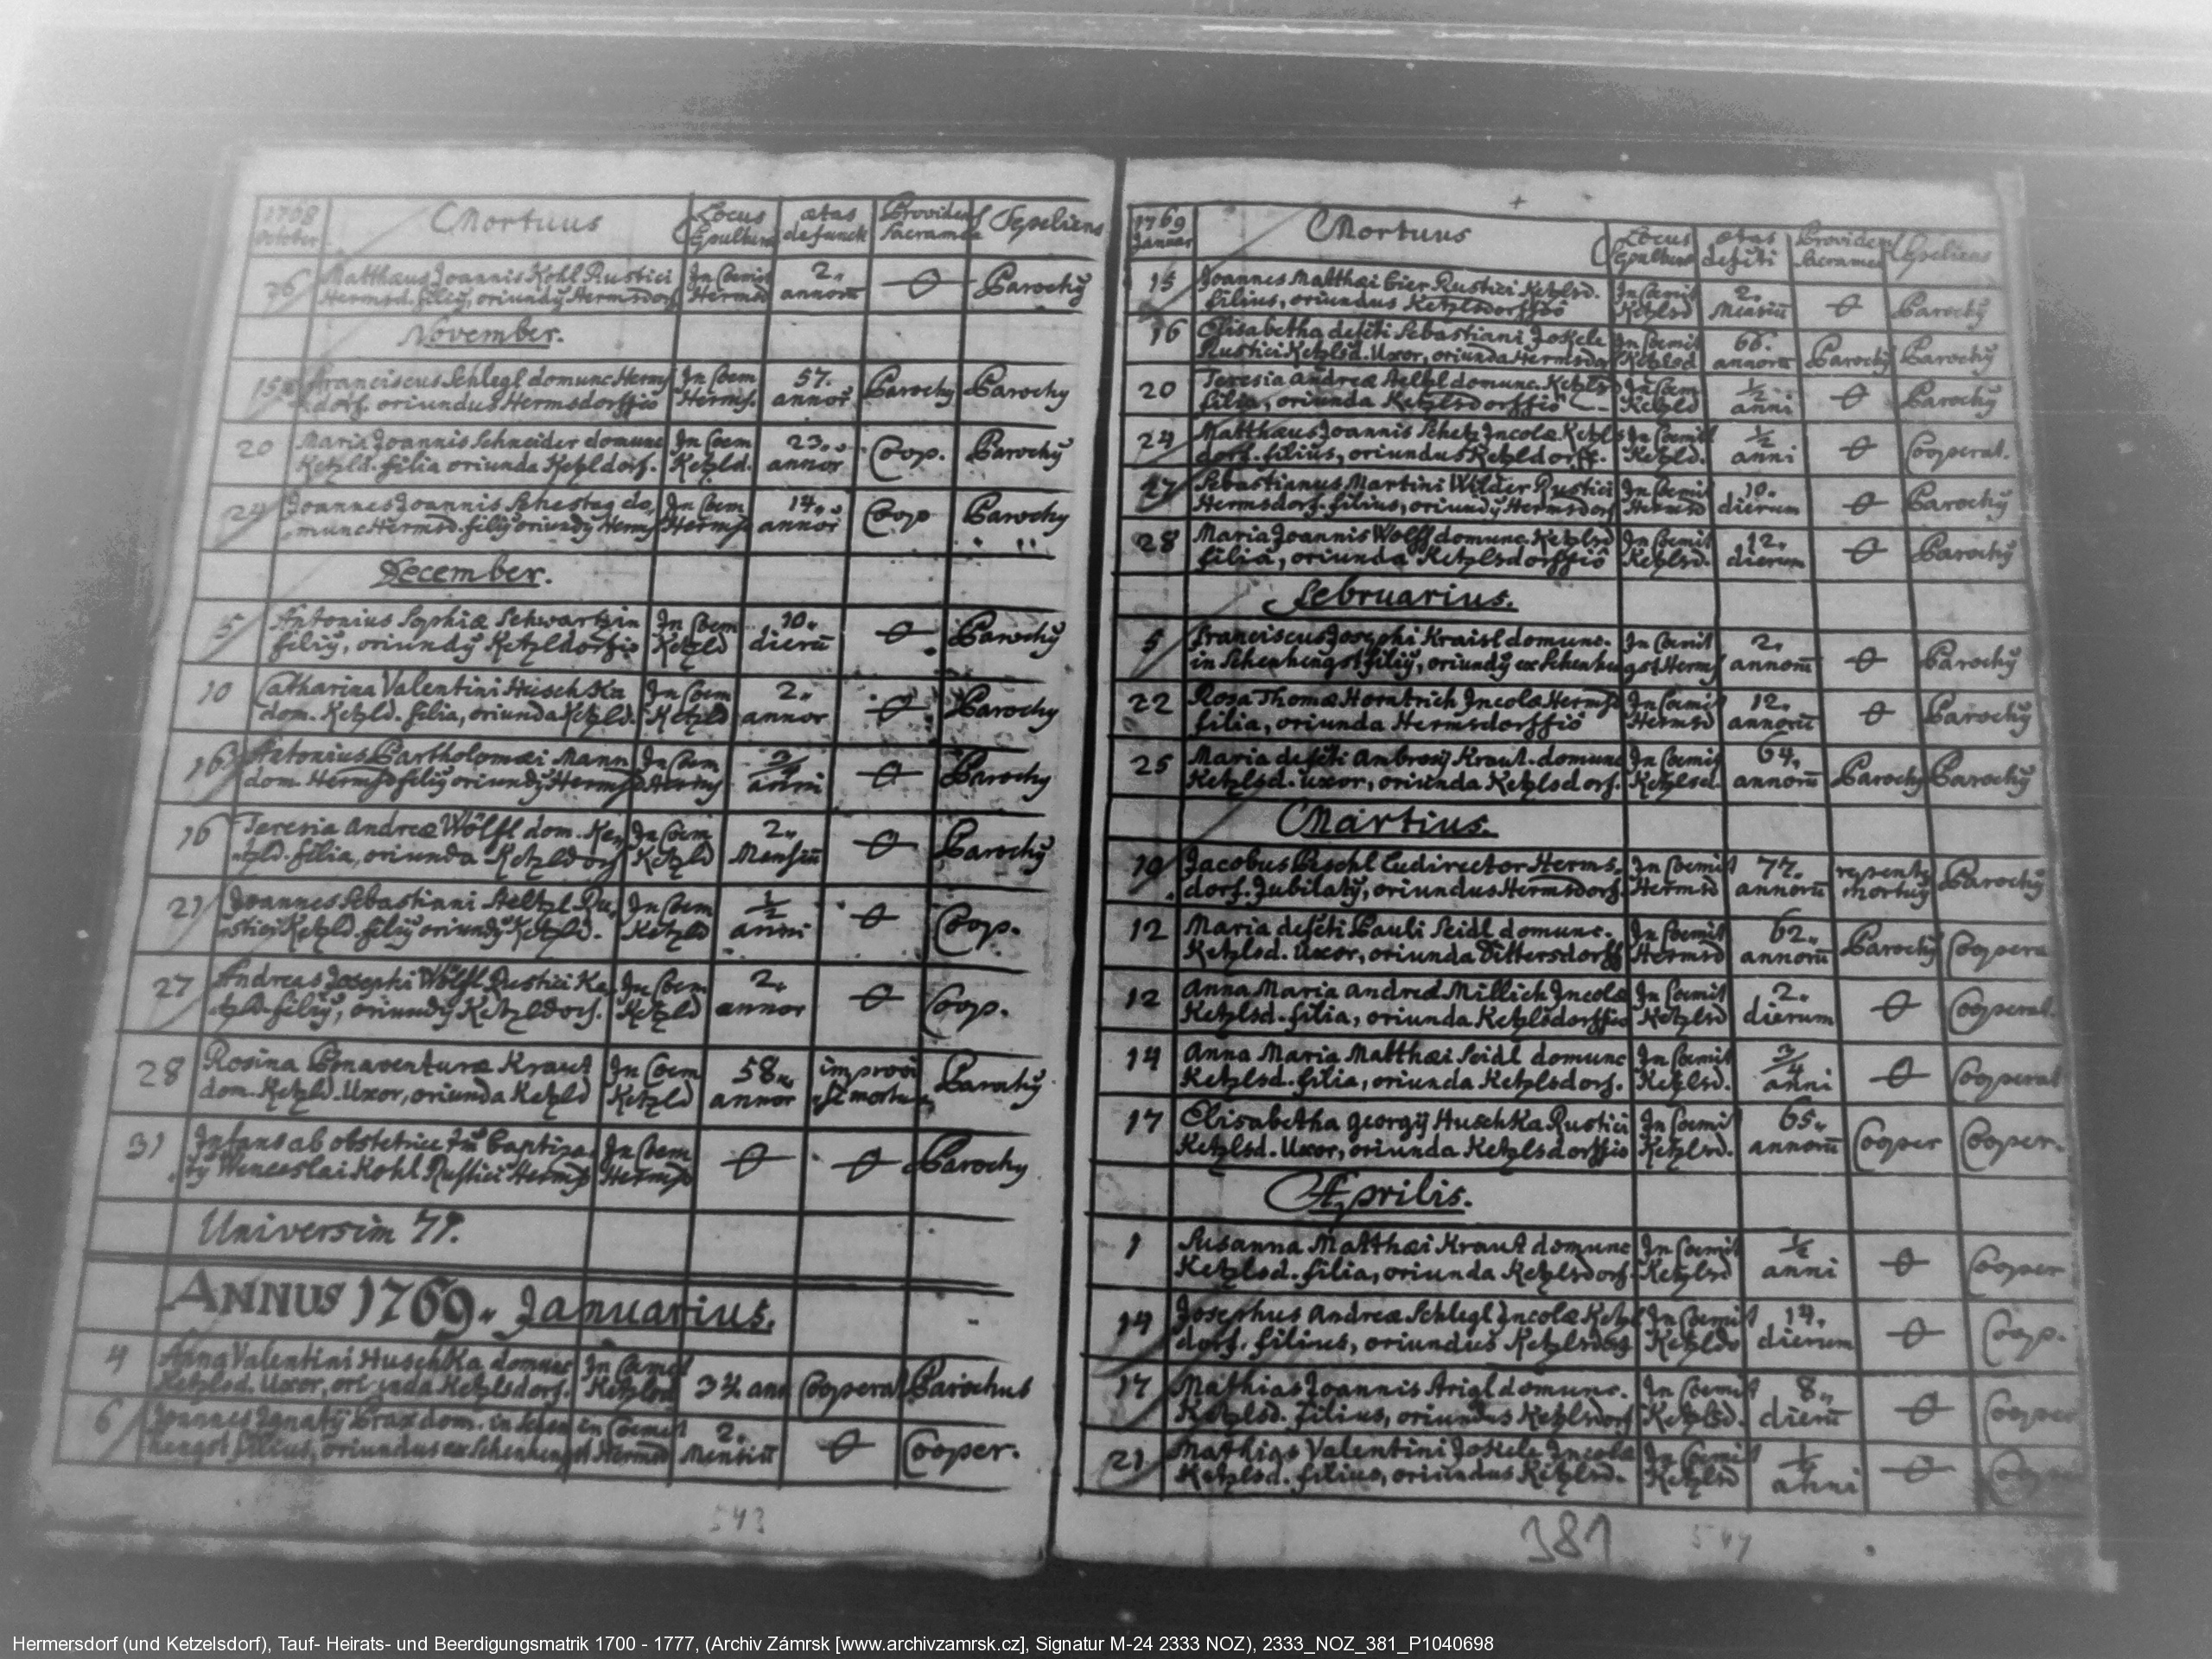 1768 October Mortuus Locus Sepulturae ætas defuncti Providens Sacramen Sepeliens
26 Matthæus Joannis Kohl Rustici In Coemit 2. ⦵ Parochӱ
Hermsd. filiӱ, oriundӱ Hermsdorf Hermsd annorū
November.
15 Franciscus Schlegl domunc Herms In Coem 57. Parochӱ Parochӱ
dorf. oriundus Hermsdorffio Herms. annor
20 Maria Joannis Schneider domunc In Coem 23. Coop. Parochӱ
Ketzld. filia oriunda Ketzldorf. Ketzld. annor
24 Joannes Joannis Schestag do, In Coem 14. Coop Parochӱ
munc Hermsd. filiӱ oriundӱ Herms Hermsd annor
December.
5 Antonius Sophiæ Schwartzin In Coem 10. ⦵ Parochӱ
filiӱ, oriundӱ Ketzldorfio Ketzld dierū
10 Catharina Valentini Huschka In Coem 2. ⦵ Parochӱ
dom. Ketzld. filia, oriunda Ketzld. Ketzld annor
16 Antonius Bartholomæi Mann In Coem ⦵ Parochӱ
dom. Hermsd filiӱ oriundӱ Hermsd Herms anni
16 Teresia Andreæ Wölfl dom. Ke, In Coem 2. ⦵ Parochӱ
tzld. filia, oriunda Ketzldorf Ketzld Mensiū
21 Joannes Sebastiani Aeltzl Ru, In Coem ½ ⦵ Coop.
stici Ketzld. filiӱ oriundӱ Ketzld. Ketzld anni
27 Andreas Josephi Wölfl Rustici Ke, In Coem 2. ⦵ Coop.
tzld. filiӱ, oriundӱ Ketzldorf. Ketzld annor
28 Rosina Bonaventuræ Kraut In Coem 58. improvi Parochӱ
dom. Ketzld. Uxor, oriunda Ketzld Ketzld annor se mortu
31 Infans ab obstetrice baptiza, In Coem ⦵ ⦵ Parochӱ
tӱ Wenceslai Kohl Rustici Hermsd Hermsd
Universim 71.
ANNUS 1769. Januarius.
4 Anna Valentini Huschka domunc In Coemet 3¼ ann Cooperat Parochus
Ketzlsd. Uxor, oriunda Ketzlsdorf. Ketzlsd
6 Joannes Ignatӱ dom. in Schen in Coemet 2. ⦵ Cooper.
hengst filius, oriundus ex Schenhengst Hermsd Mensiū
543
1769 Januar Mortuus Locus Sepulturæ ætas defūti Providens Sacramen Sepeliens
15 Joannes Matthæi Bier Rustici Ketzlsd. In Coemit 2. ⦵ Parochӱ
filius, oriundus Ketzlsdorffiô Ketzlsd Mensiū
16 Elisabetha defūti Sebastiani Jokele In Coemit 66. Parochӱ Parochӱ
Rustici Ketzlsd. Uxor, oriunda Hermsdor Ketzlsd annorū
20 Teresia Andreæ Aeltzl domunc. Ketzlsd In Coem ½ ⦵ Parochӱ
filia, oriunda Ketzlsdorffiô Ketzld anni
24 Matthæus Joannis Schetz Incolæ Ketzls In Coemit ½ ⦵ Cooperat.
dorf. filius, oriundus Ketzldorff. Ketzld. anni
27 Sebastianus Martini Wilder Rustici In Coemit 10. ⦵ Parochӱ
Hermsdorf. filius, oriundӱ Hermsdorf Hermsd dierum
28 Maria Joannis Wolff domunc. Ketzlsd In Coemit 12. ⦵ Parochӱ
filia, oriunda Ketzlsdorffiô Ketzlsd. dierum
Februarius.
5 Franciscus Josephi Kraisl domunc. In Coemit 2. ⦵ Parochӱ
in Schenhengst filiӱ, oriundӱ ex Schenhengst Herms annorū
22 Rosa Thomæ Horntrich Incolæ Hermsd In Coemit 12. ⦵ Parochӱ
filia, oriunda Hermsdorffiô Hermsd annorū
25 Maria defūti Ambrosӱ Kraut. domunc In Coemit 64. Parochӱ Parochӱ
Ketzlsd. uxor, oriunda Ketzlsdorf. Ketzlsd. annorū
Martius.
10 Jacobus Peschl Ludirector Herms, In Coemit 77. repente Parochӱ
dorf. Jubilatӱ, oriundus Hermsdorf. Hermsd annorū mortuӱ
12 Maria defūti Pauli Seidl domunc. In Coemit 62. Parochӱ Coopera
Ketzlsd. Uxor, oriunda Dittersdorff Hermsd annorū
12 Anna Maria Andreæ Millich Incolæ In Coemit 2. ⦵ Cooperat.
Ketzlsd. filia, oriunda Ketzlsdorffio Ketzlsd dierum
14 Anna Maria Matthæi Seidl domunc In Coemit ¾ ⦵ Cooperat
Ketzlsd. filia, oriunda Ketzlsdorf. Ketzlsd. anni
17 Elisabetha Georgӱ Huschka Rustici In Coemit 65. Cooper Cooper.
Ketzlsd. Uxor, oriunda Ketzlsdorffio Ketzlsd. annorū
Aprilis.
1 Susanna Matthæi Kraut domunc In Coemit ½ ⦵ Cooper
Ketzlsd. filia, oriunda Ketzlsdorf. Ketzlsd anni
14 Josephus Andreæ Schlegl Incolæ Ketzls In Coemit 14. ⦵ Coop.
dorf. filius, oriundus Ketzlsdorf Ketzlsd dierum
17 Mathias Joannis Arigl domunc. In Coemit 8. ⦵ Cooper
Ketzlsd. filius, oriundus Ketzlsdorf Ketzlsd. dierū
21 Mathias Valentini Jokele Incolæ In Coemit ⦵
Ketzlsd. filius, oriundus Ketzlsd. Ketzlsd anni
381 544
Hermersdorf (und Ketzelsdorf), Tauf- Heirats- und Beerdigungsmatrik 1700 - 1777, (Archiv Zámrsk [www.archivzamrsk.cz], Signatur M-24 2333 NOZ), 2333_NOZ_381_P1040698